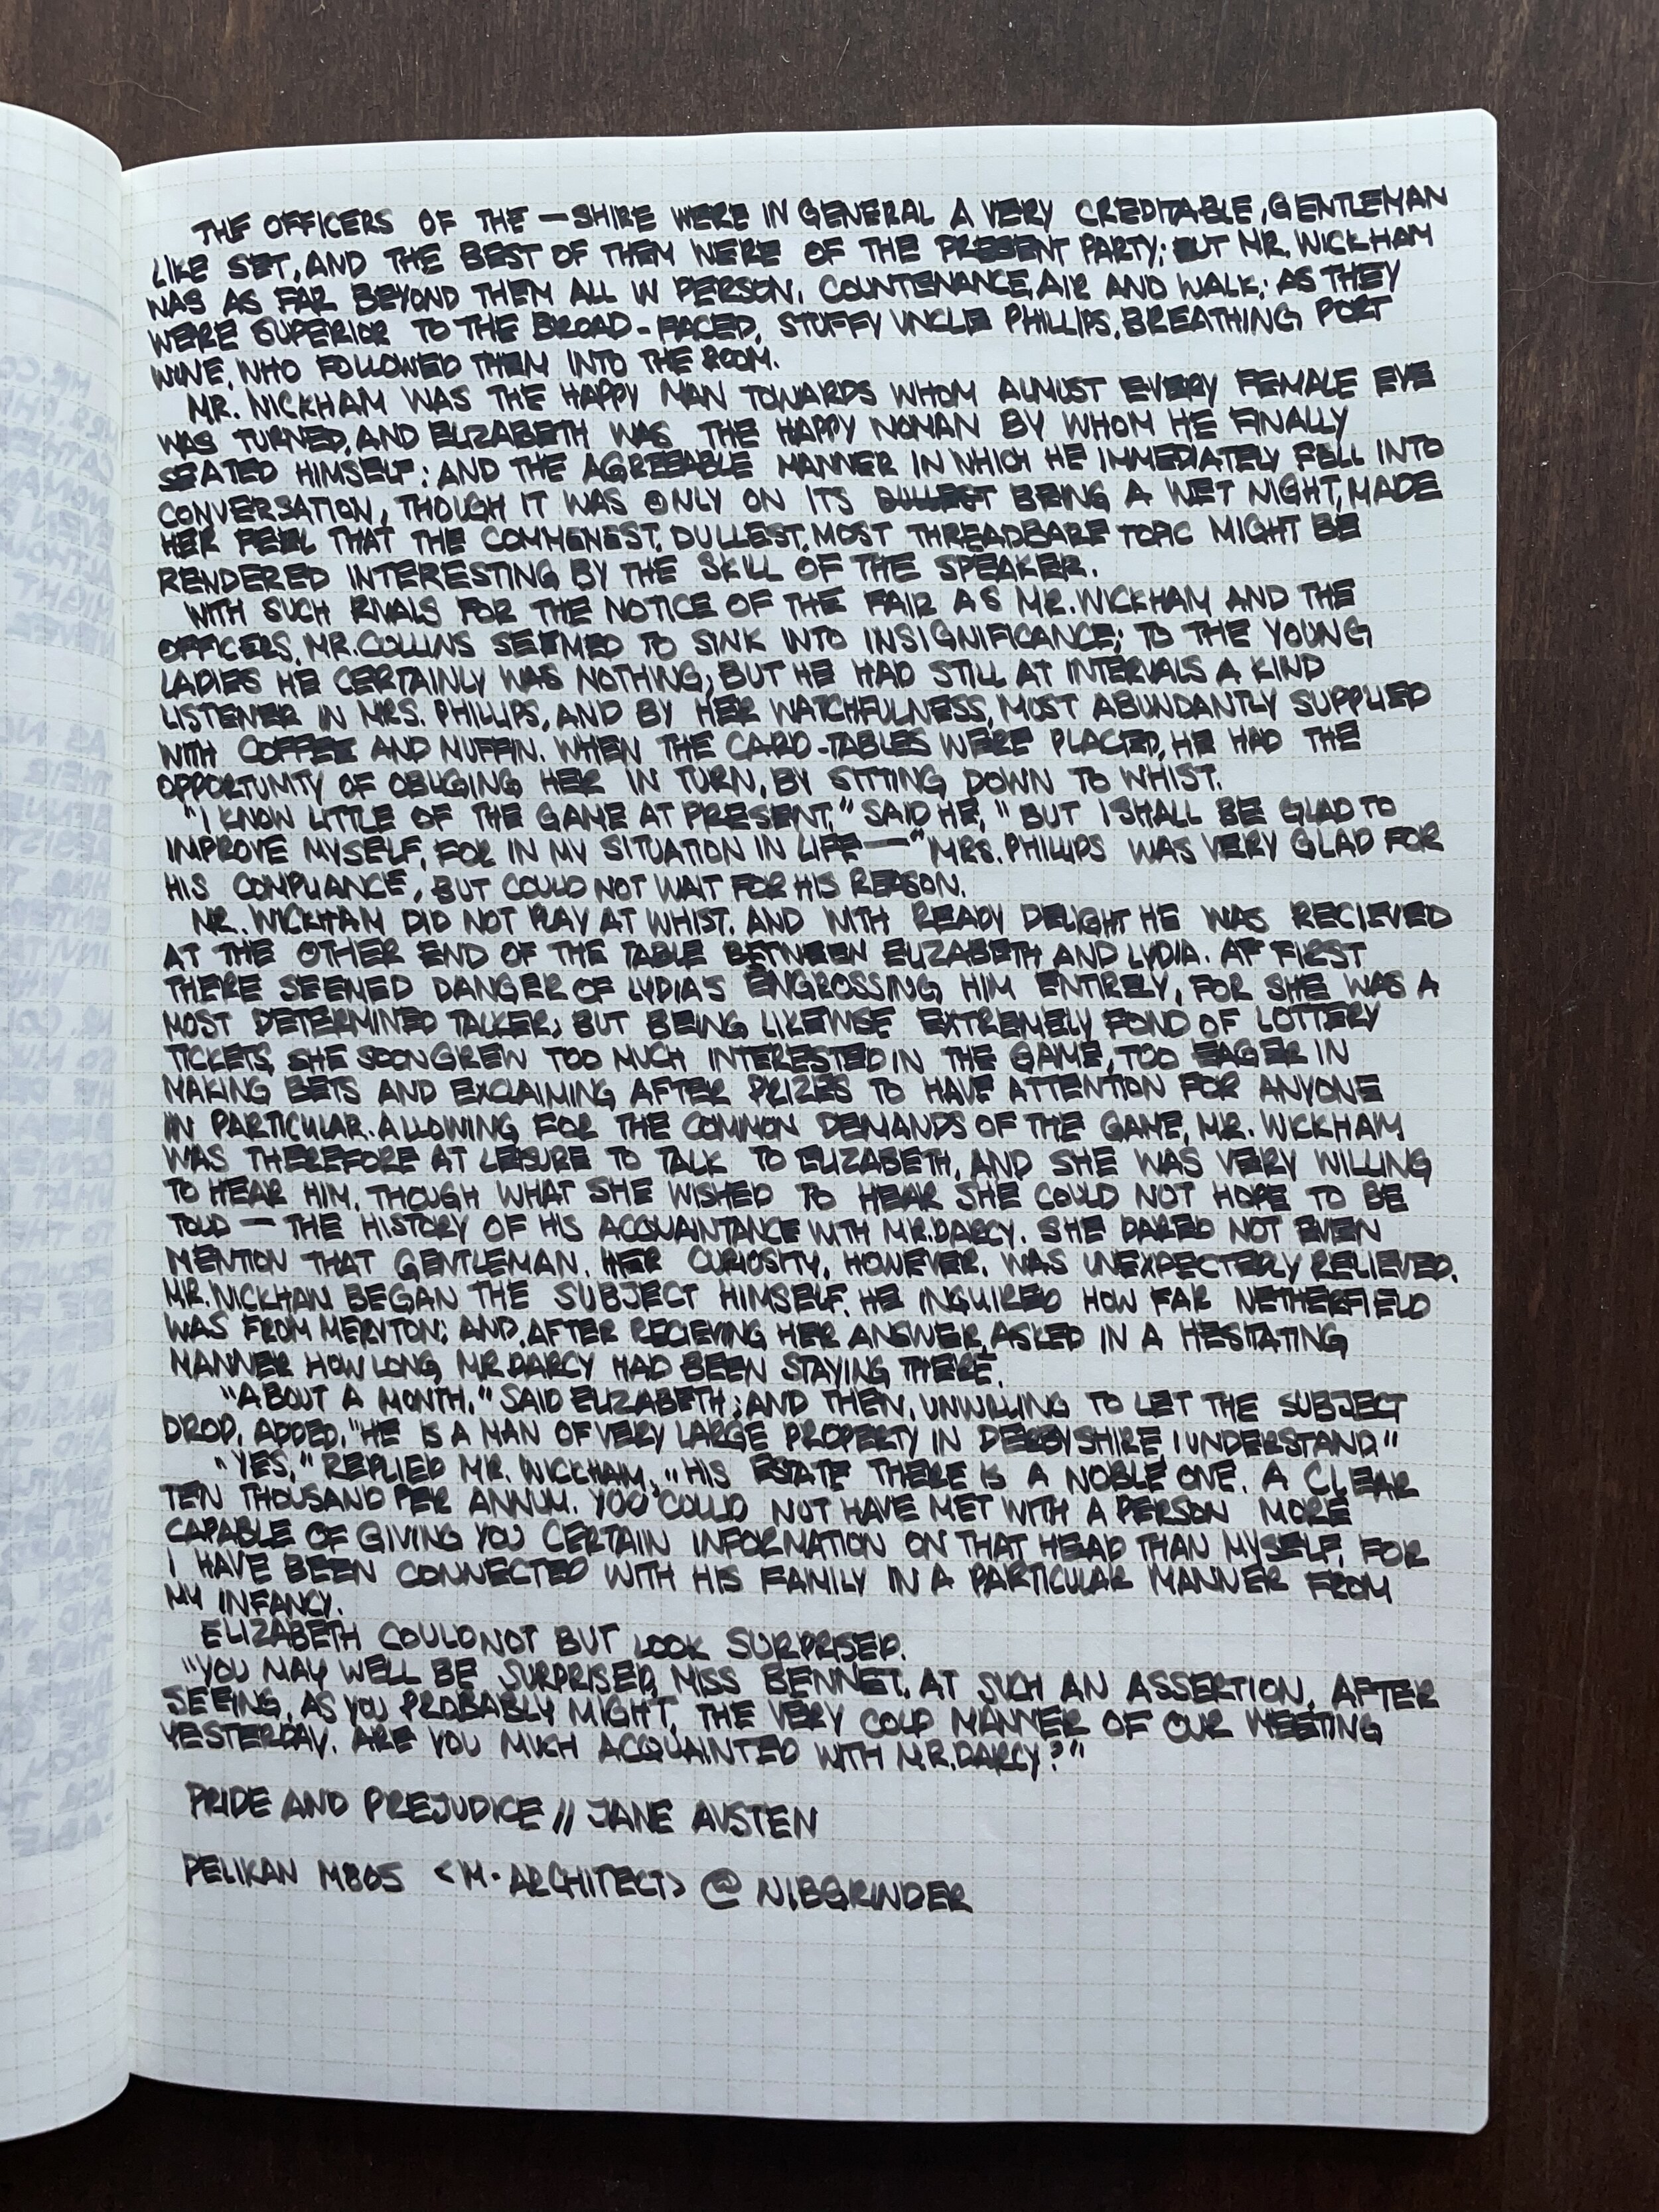 THE OFFICERS OF THE —SHIRE WERE IN GENERAL A VERY CREDITABLE, GENTLEMAN
LIKE SET, AND THE BEST OF THEM WERE OF THE PRESENT PARTY; BUT MR. WICKHAM
WAS AS FAR BEYOND THEM ALL IN PERSON, COUNTENANCE, AIR AND WALK; AS THEY
WERE SUPERIOR TO THE BROAD-FACED, STUFFY UNCLE PHILLIPS, BREATHING PORT
WINE, WHO FOLLOWED THEM INTO THE ROOM.
MR. WICKHAM WAS THE HAPPY MAN TOWARDS WHOM ALMOST EVERY FEMALE EYE
WAS TURNED, AND ELIZABETH WAS THE HAPPY WOMAN BY WHOM HE FINALLY
SEATED HIMSELF; AND THE AGREEABLE MANNER IN WHICH HE IMMEDIATELY FELL INTO
CONVERSATION, THOUGH IT WAS ONLY ON ITS BEING A WET NIGHT, MADE
HER FEEL THAT THE COMMENEST, DULLEST, MOST THREADBARE TOPIC MIGHT BE
RENDERED INTERESTING BY THE SKILL OF THE SPEAKER.
WITH SUCH RIVALS FOR THE NOTICE OF THE FAIR AS MR. WICKHAM AND THE
OFFICERS, MR. COLLINS SEEMED TO SINK INTO INSIGNIFICANCE; TO THE YOUNG
LADIES HE CERTAINLY WAS NOTHING; BUT HE HAD STILL AT INTERVALS A KIND
LISTENER IN MRS. PHILLIPS, AND BY HER WATCHFULNESS, MOST ABUNDANTLY SUPPLIED
WITH COFFEE AND MUFFIN. WHEN THE CARD-TABLES WERE PLACED, HE HAD THE
OPPORTUNITY OF OBLIGING HER IN TURN, BY SITTING DOWN TO WHIST.
"I KNOW LITTLE OF THE GAME AT PRESENT," SAID HE, "BUT I SHALL BE GLAD TO
IMPROVE MYSELF, FOR IN MY SITUATION IN LIFE—" MRS. PHILLIPS WAS VERY GLAD FOR
HIS COMPLIANCE, BUT COULD NOT WAIT FOR HIS REASON.
MR. WICKHAM DID NOT PLAY AT WHIST, AND WITH READY DELIGHT HE WAS RECIEVED
AT THE OTHER END OF THE TABLE BETWEEN ELIZABETH AND LYDIA. AT FIRST
THERE SEEMED DANGER OF LYDIA'S ENGROSSING HIM ENTIRELY, FOR SHE WAS A
MOST DETERMINED TALKER; BUT BEING LIKEWISE EXTREMELY FOND OF LOTTERY
TICKETS, SHE SOON GREW TOO MUCH INTERESTED IN THE GAME, TOO EAGER IN
MAKING BETS AND EXCLAIMING AFTER PRIZES TO HAVE ATTENTION FOR ANYONE
IN PARTICULAR. ALLOWING FOR THE COMMON DEMANDS OF THE GAME, MR. WICKHAM
WAS THEREFORE AT LEISURE TO TALK TO ELIZABETH, AND SHE WAS VERY WILLING
TO HEAR HIM, THOUGH WHAT SHE WISHED TO HEAR SHE COULD NOT HOPE TO BE
TOLD — THE HISTORY OF HIS ACQUAINTANCE WITH MR. DARCY. SHE DARED NOT EVEN
MENTION THAT GENTLEMAN. HER CURIOSITY, HOWEVER, WAS UNEXPECTEDLY RELIEVED.
MR. WICKHAM BEGAN THE SUBJECT HIMSELF. HE INQUIRED HOW FAR NETHERFIELD
WAS FROM MERYTON; AND, AFTER RECIEVING HER ANSWER, ASKED IN A HESITATING
MANNER HOW LONG MR. DARCY HAD BEEN STAYING THERE.
"ABOUT A MONTH," SAID ELIZABETH; AND THEN, UNWILLING TO LET THE SUBJECT
DROP, ADDED, "HE IS A MAN OF VERY LARGE PROPERTY IN DERBYSHIRE I UNDERSTAND."
"YES," REPLIED MR. WICKHAM, "HIS ESTATE THERE IS A NOBLE ONE. A CLEAR
TEN THOUSAND PER ANNUM. YOU COULD NOT HAVE MET WITH A PERSON MORE
CAPABLE OF GIVING YOU CERTAIN INFORMATION ON THAT HEAD THAN MYSELF, FOR
I HAVE BEEN CONNECTED WITH HIS FAMILY IN A PARTICULAR MANNER FROM
MY INFANCY.
ELIZABETH COULD NOT BUT LOOK SURPRISED.
"YOU MAY WELL BE SURPRISED, MISS BENNET, AT SUCH AN ASSERTION, AFTER
SEEING, AS YOU PROBABLY MIGHT, THE VERY COLD MANNER OF OUR MEETING
YESTERDAY. ARE YOU MUCH ACQUAINTED WITH MR. DARCY?"
PRIDE AND PREJUDICE // JANE AUSTEN
PELIKAN M805 <M·ARCHITECT> @ NIBGRINDER